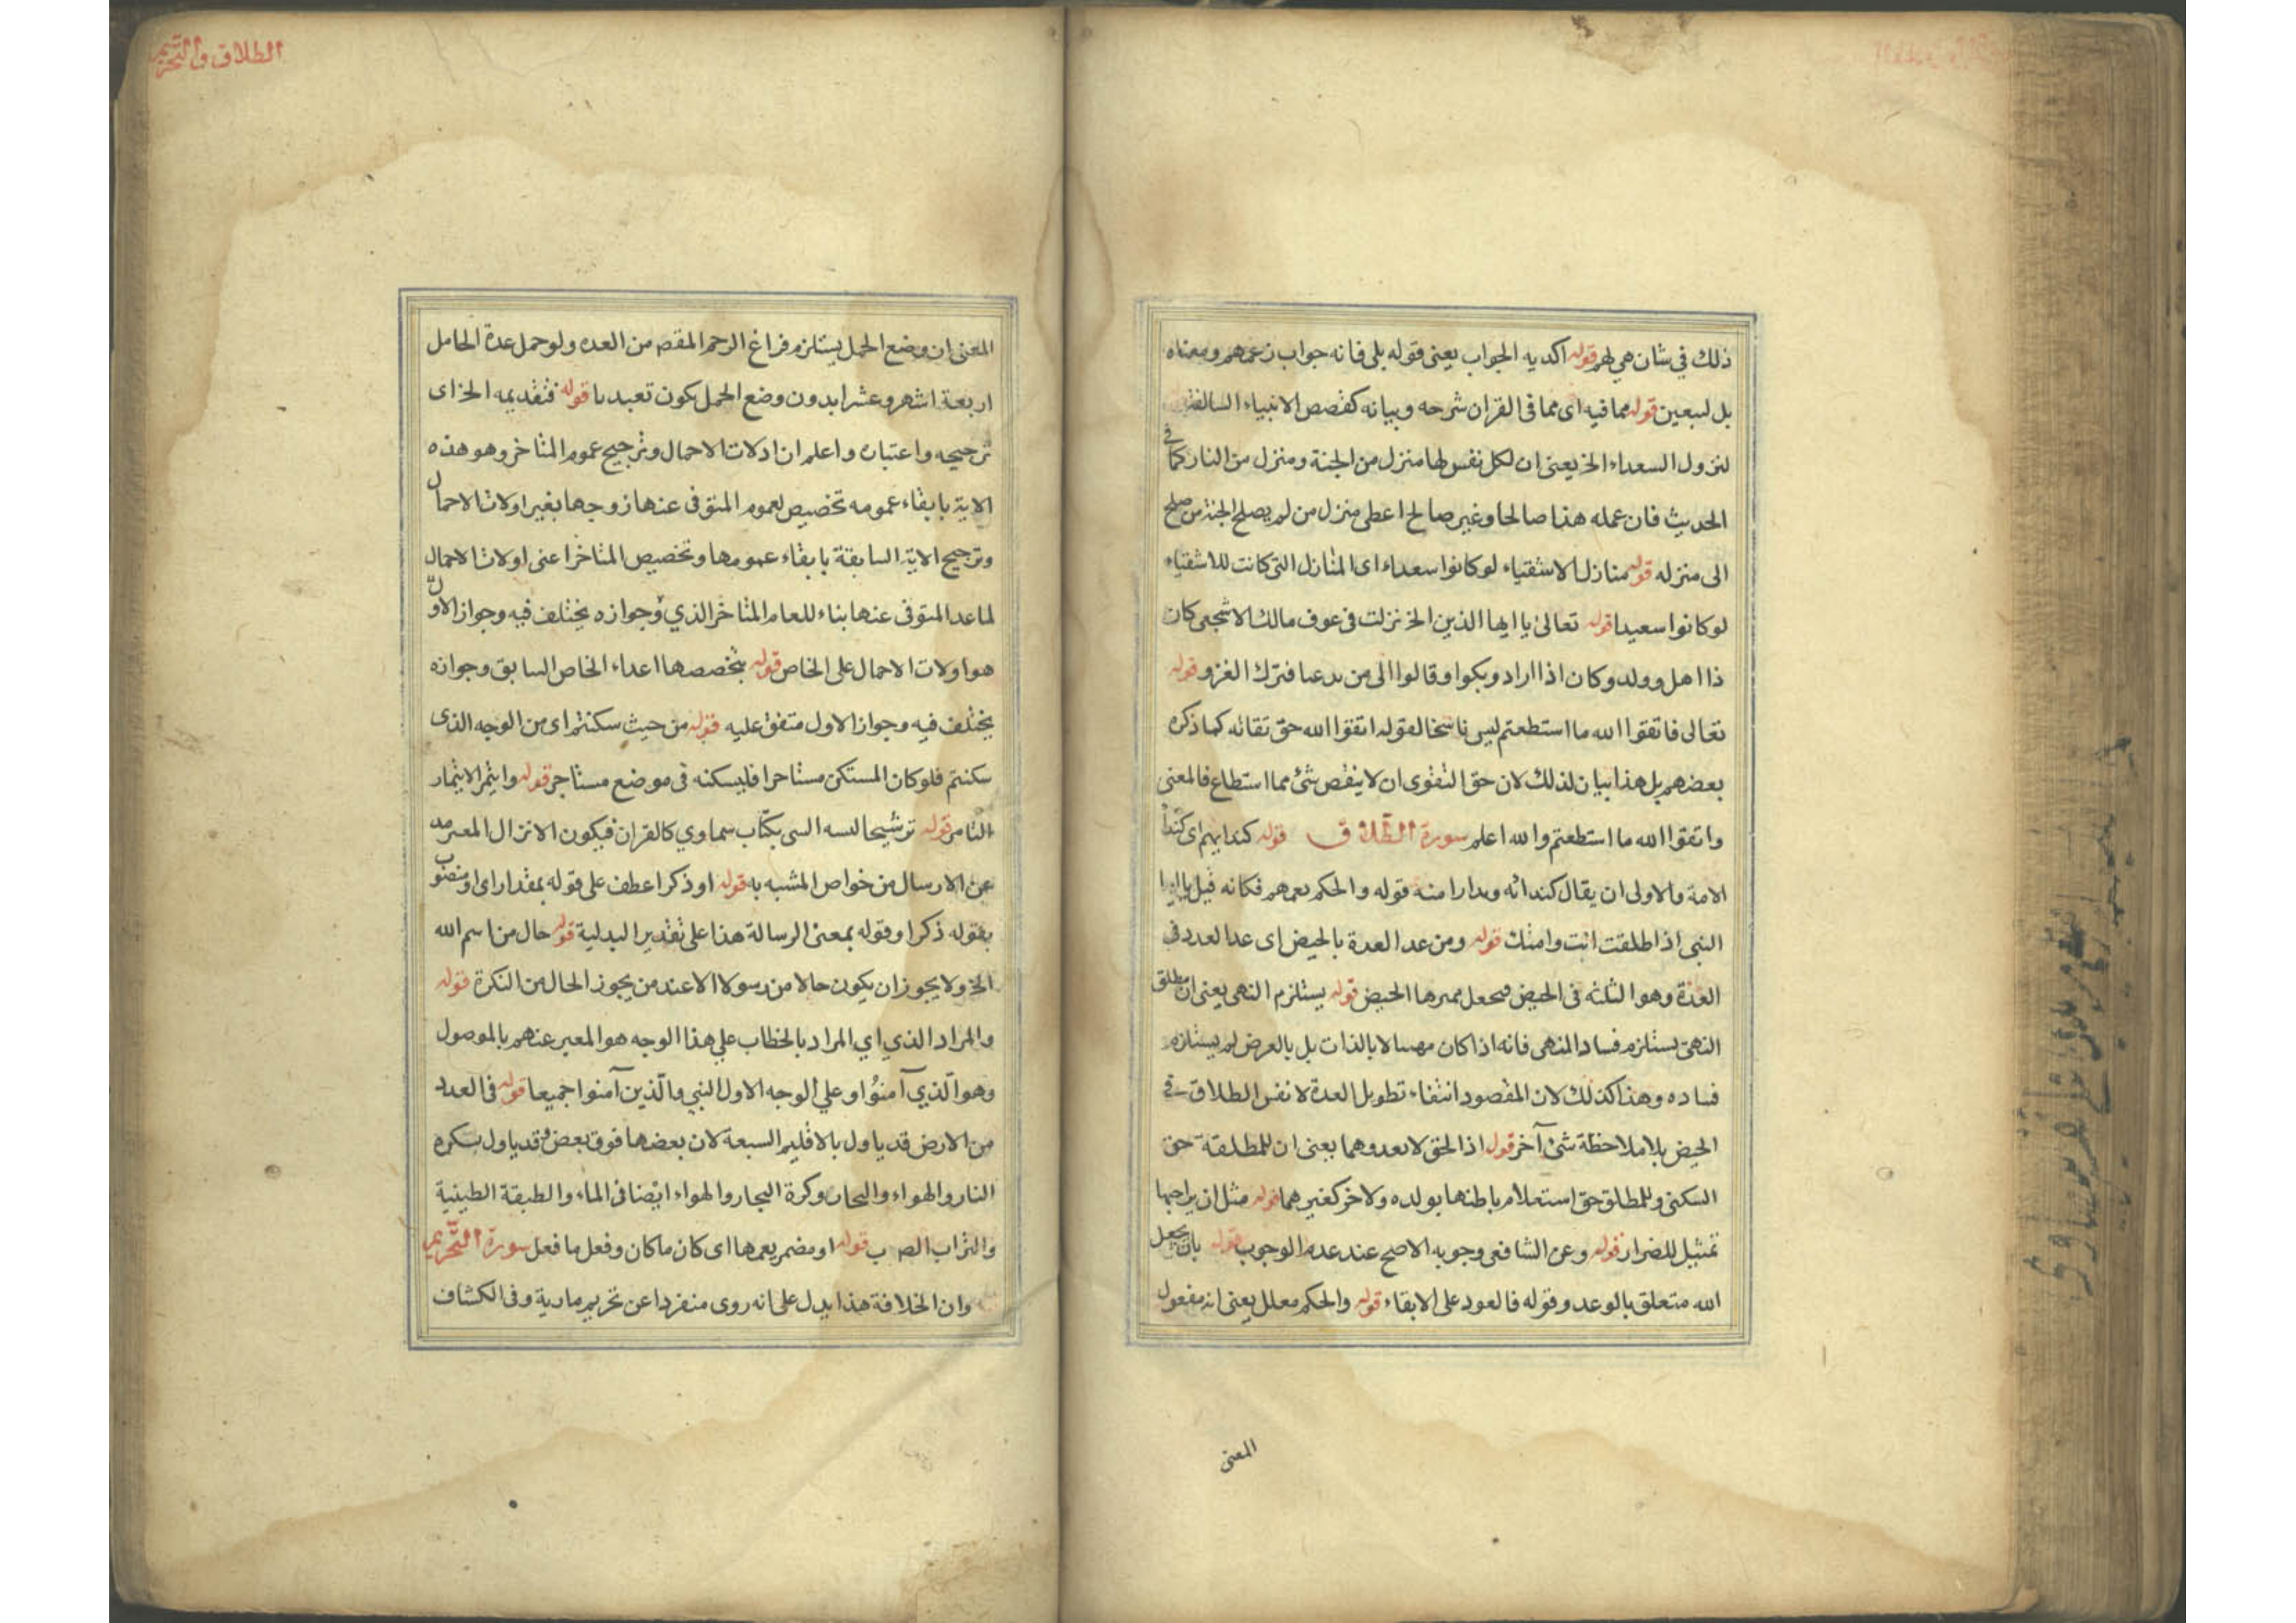 ذلك في شان هي لهم قوله اكد به الجواب يعنى قوله بلى فانه جواب زعمهم ومعناه
بل لسبعين قوله مما فيه اى مما فى القران شرحه وبيانه كقصص الانبياء السالفة
لنزول السعداء الخ يعنى ان لكل نفس لها منزل من الجنة ومنزل من النار كما فى
الحديث فان عمله هذا صالحا وغير صالح اعطى منزل من لم يصلح الجنة من صلح
الى منزله قوله منازل الاشقياء لو كانوا سعداء اى المنازل التى كانت للاشقياء
لو كانوا سعيدا قوله تعالى يا ايها الذين الخ نزلت فى عوف مالك الاشجعى كان
ذا اهل وولد وكان اذا اراد وبكوا وقالوا الى من تدعنا فترك الغزو قوله
تعالى فاتقوا الله ما استطعتم ليس ناسخا لقوله اتقوا الله حق تقاته كما ذكره
بعضهم بل هذا بيان لذلك لان حق التقوى ان لا ينقص شئ مما استطاع فالمعنى
واتقوا الله ما استطعتم والله اعلم سورة الطلاق قوله كندايهم اى كندا
الامة والاولى ان يقال كندائه وندارا منه قوله والحكم يعمهم فكانه قيل يا ايها
النبى اذا طلقت انت وامتك قوله ومن عد العدة بالحيض اى عد العدد فى
العدة وهو الثلثه فى الحيض فيجعل مميزها الحيض قوله يستلزم النهى يعنى ان مطلق
النهى يستلزم فساد المنهى فانه اذا كان منهيا لا بالذات بل بالعرض لم يستلزم
فساده وهذا كذلك لان المقصود انتفاء تطويل العدة لا نفس الطلاق فى
الحيض بلا ملاحظة شئ آخر قوله اذ الحق لا يعدوهما يعنى ان للمطلقة حق
السكنى وللمطلق حق استعلام باطنها بولده ولا خر كغيرهما قوله مثل ان يراجعها
تمثيل للضرار قوله وعن الشافعى وجوبه الاصح عنده عدم الوجوب قوله بان يجعل
الله متعلق بالوعد وقوله فالعود على الابقاء قوله والحكم معلل يعنى انه مفعول
المعنى
الطلاق والتحريم
المعنى ان وضع الحمل يستلزم فراغ الرحم المقصم من العده ولو حمل عدة الحامل
اربعة اشهر وعشرا بدون وضع الحمل يكون تعبديا قوله فتقديمه الخ اى
ترجيحه واعتباره واعلم ان ادلات الاحمال وترجيح عموم المتاخر وهو هذه
الاية بابقاء عمومه تخصيص لعموم المتوفى عنها زوجها بغير اولات الاحمال
وترجيح الاية السابقة بابقاء عمومها وتخصيص المتاخر اعنى اولات الاحمال
لما عدا المتوفى عنها بناء للعام المتاخر الذي وجوازه يختلف فيه وجواز الاول
هو اولات الاحمال على الخاص قوله بتخصصها اعداء الخاص السابق وجوازه
يختلف فيه وجواز الاول متفق عليه قوله من حيث سكنتم اى من الوجه الذى
سكنتم فلو كان المستكن مستاجرا فليسكنه فى موضع مستاجر قوله وايتمر الايتمار
التامر قوله ترشيحا لنسبه النبى بكتاب سماوي كالقران فيكون الانزال المعبر به
عن الارسال من خواص المشبه به قوله او ذكرا عطف على قوله بمقدار اى او منصوب
بقوله ذكرا وقوله بمعنى الرسالة هذا على تقدير البدلية قوله حال من اسم الله
الخ ولا يجوز ان يكون حالا من رسولا الا عند من يجوز الحال من النكرة قوله
والمراد الذي اي المراد بالخطاب علي هذا الوجه هو المعبر عنهم بالموصول
وهو الذي آمنوا وعلي الوجه الاول النبي والذين آمنوا جميعا قوله فى العدد
من الارض قد ياول بالاقليم السبعة لان بعضها فوق بعض وقد ياول بسكره
النار والهواء والبحار وكرة البحار والهواء ايضا فى الماء والطبقة الطينية
والتراب الصرف قوله او مضمر يعمها اى كان ما كان وفعل ما فعل سورة التحريم
وان الخلافة هذا يدل على انه روى منفردا عن تحريم مارية وفى الكشاف